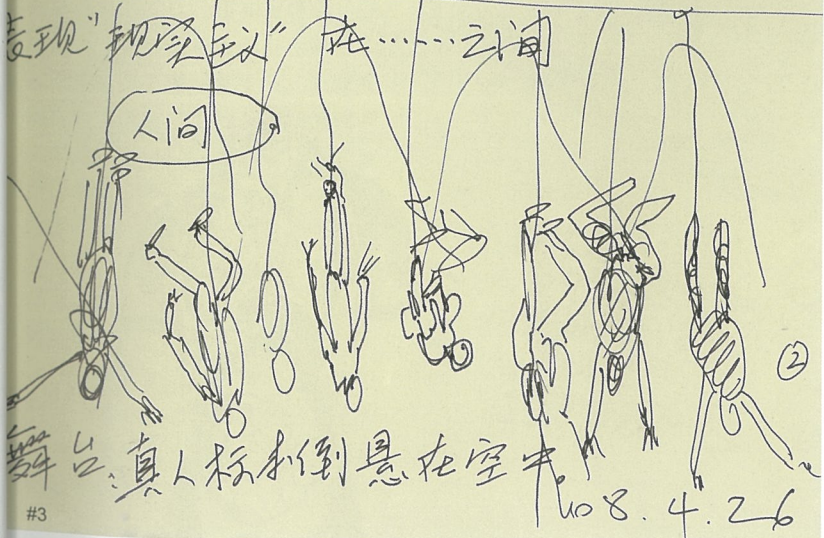 表现“现实主义”在……之间
人间
②
舞台：真人标本倒悬在空中。
08.4.26
#3